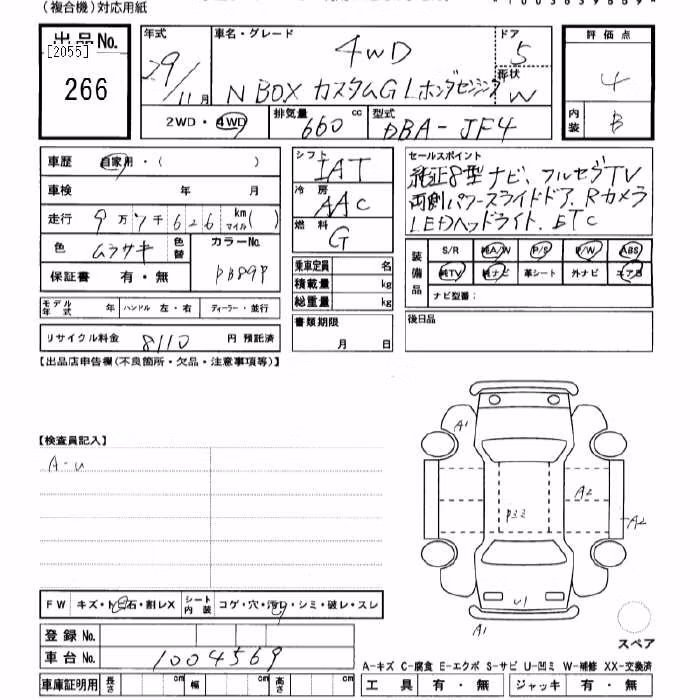 (複合機)対応用紙
出品No.
[2055]
266
年式 29/11月
車名・グレード 4WD
N BOX カスタムG Lホンダセンシング
ドア 5
形状 W
2WD・4WD
排気量 660 cc
型式 DBA-JF4
評価点 4
内装 B
車歴 自家用・( )
車検 年 月
走行 9万7千626 km マイル( )
色 ムラサキ 色替 カラーNo. PB89P
保証書 有・無
モデル年式 年 ハンドル 左・右 ディーラー・並行
リサイクル料金 8110 円 預託済
シフト IAT
冷房 AAC
燃料 G
乗車定員 名
積載量 kg
総重量 kg
書類期限 月 日
セールスポイント
純正8型ナビ、フルセグTV
両側パワースライドドア、Rカメラ
LEDヘッドライト、ETC
装備品 S/R 純A/W P/S P/W ABS
純TV 純ナビ 革シート 外ナビ エアB
ナビ型番:
後日品
【出品店申告欄(不良箇所・欠品・注意事項等)】
【検査員記入】
A-U
A1
A2
A2
U1
A1
FW キズ・トビ石・割レX シート内装 コゲ・穴・汚レ・シミ・破レ・スレ
登録No.
車台No. 1004569
車庫証明用 長さ cm 幅 cm 高さ cm
スペア
A-キズ C-腐食 E-エクボ S-サビ U-凹ミ W-補修 XX-交換済
工具 有・無 ジャッキ 有・無